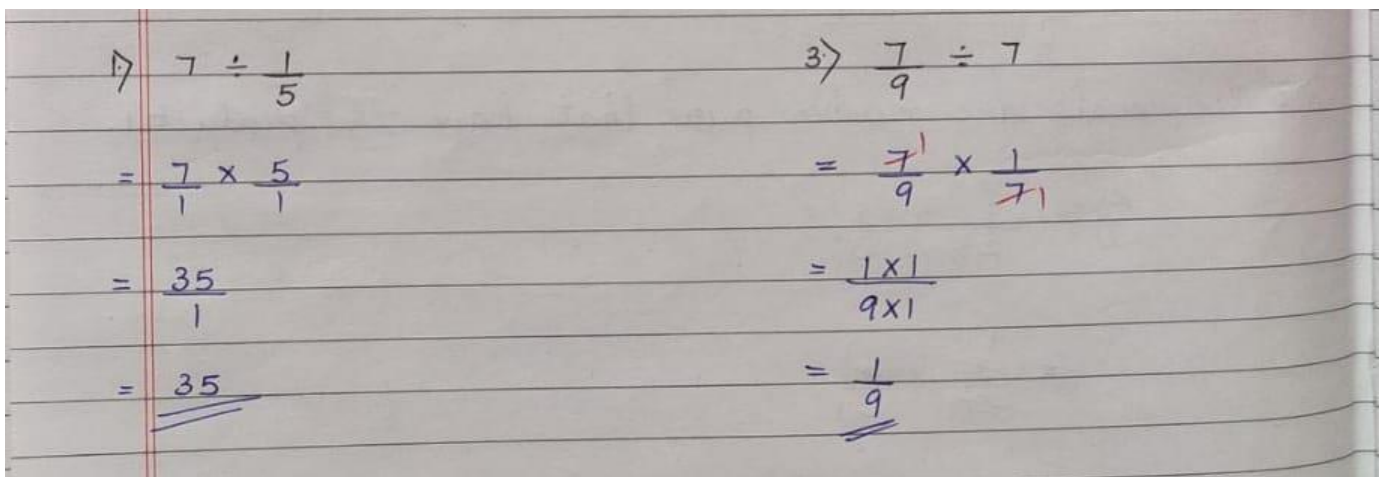 1) 7 ÷ 1/5
= 7/1 × 5/1
= 35/1
= 35
3) 7/9 ÷ 7
= 7 1/9 × 1/7 1
= 1×1/9×1
= 1/9